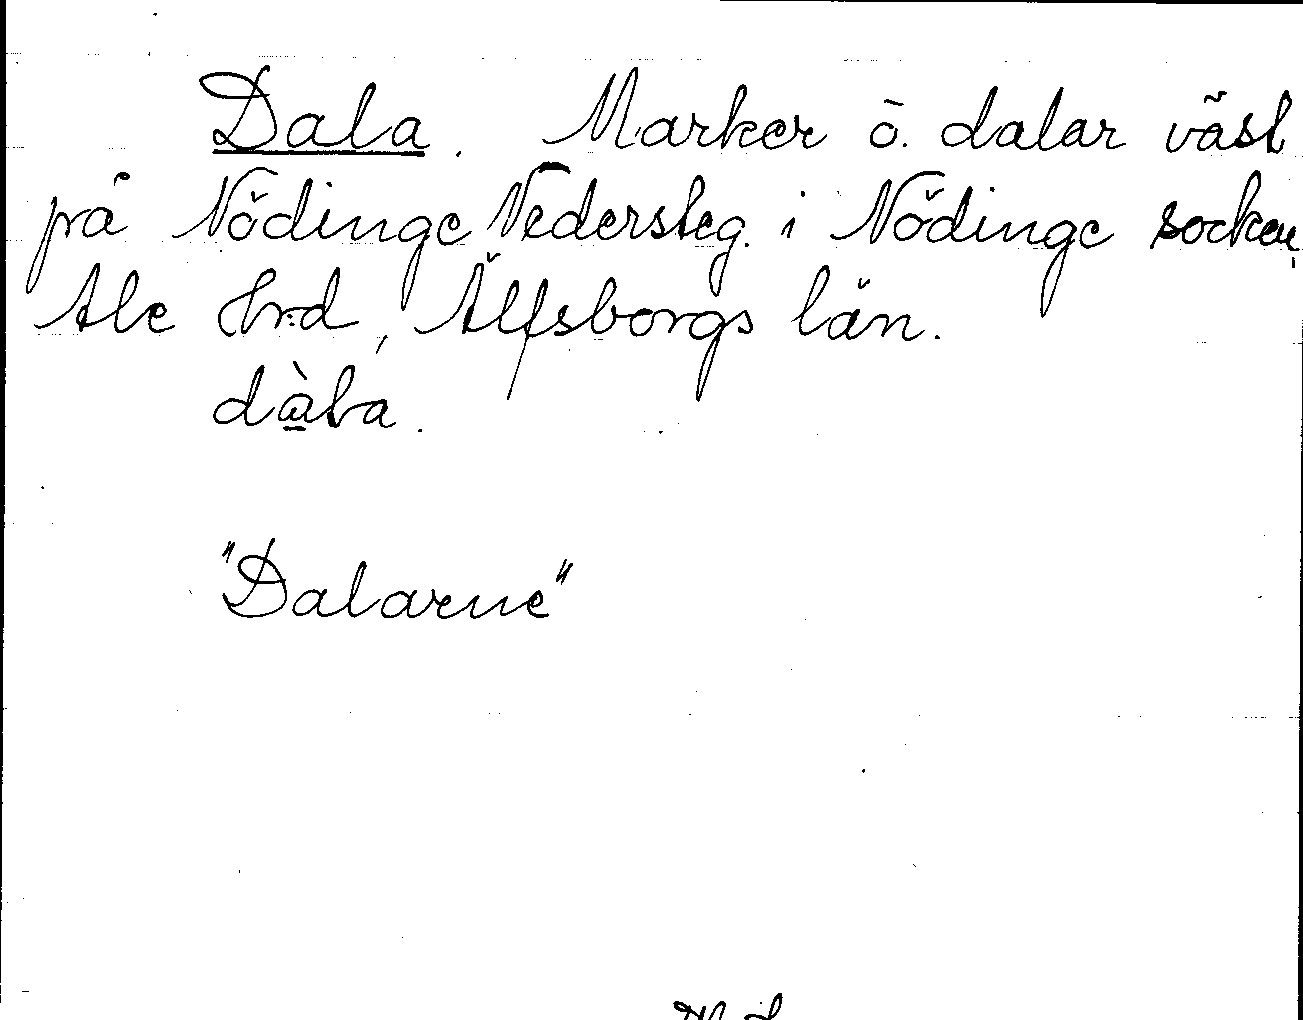 Dala. Marker o. dalar väst
på Nödinge Nedersteg. i Nödinge socken,
Ale hrd, Älfsborgs län.
dàla.
"Dalarne"